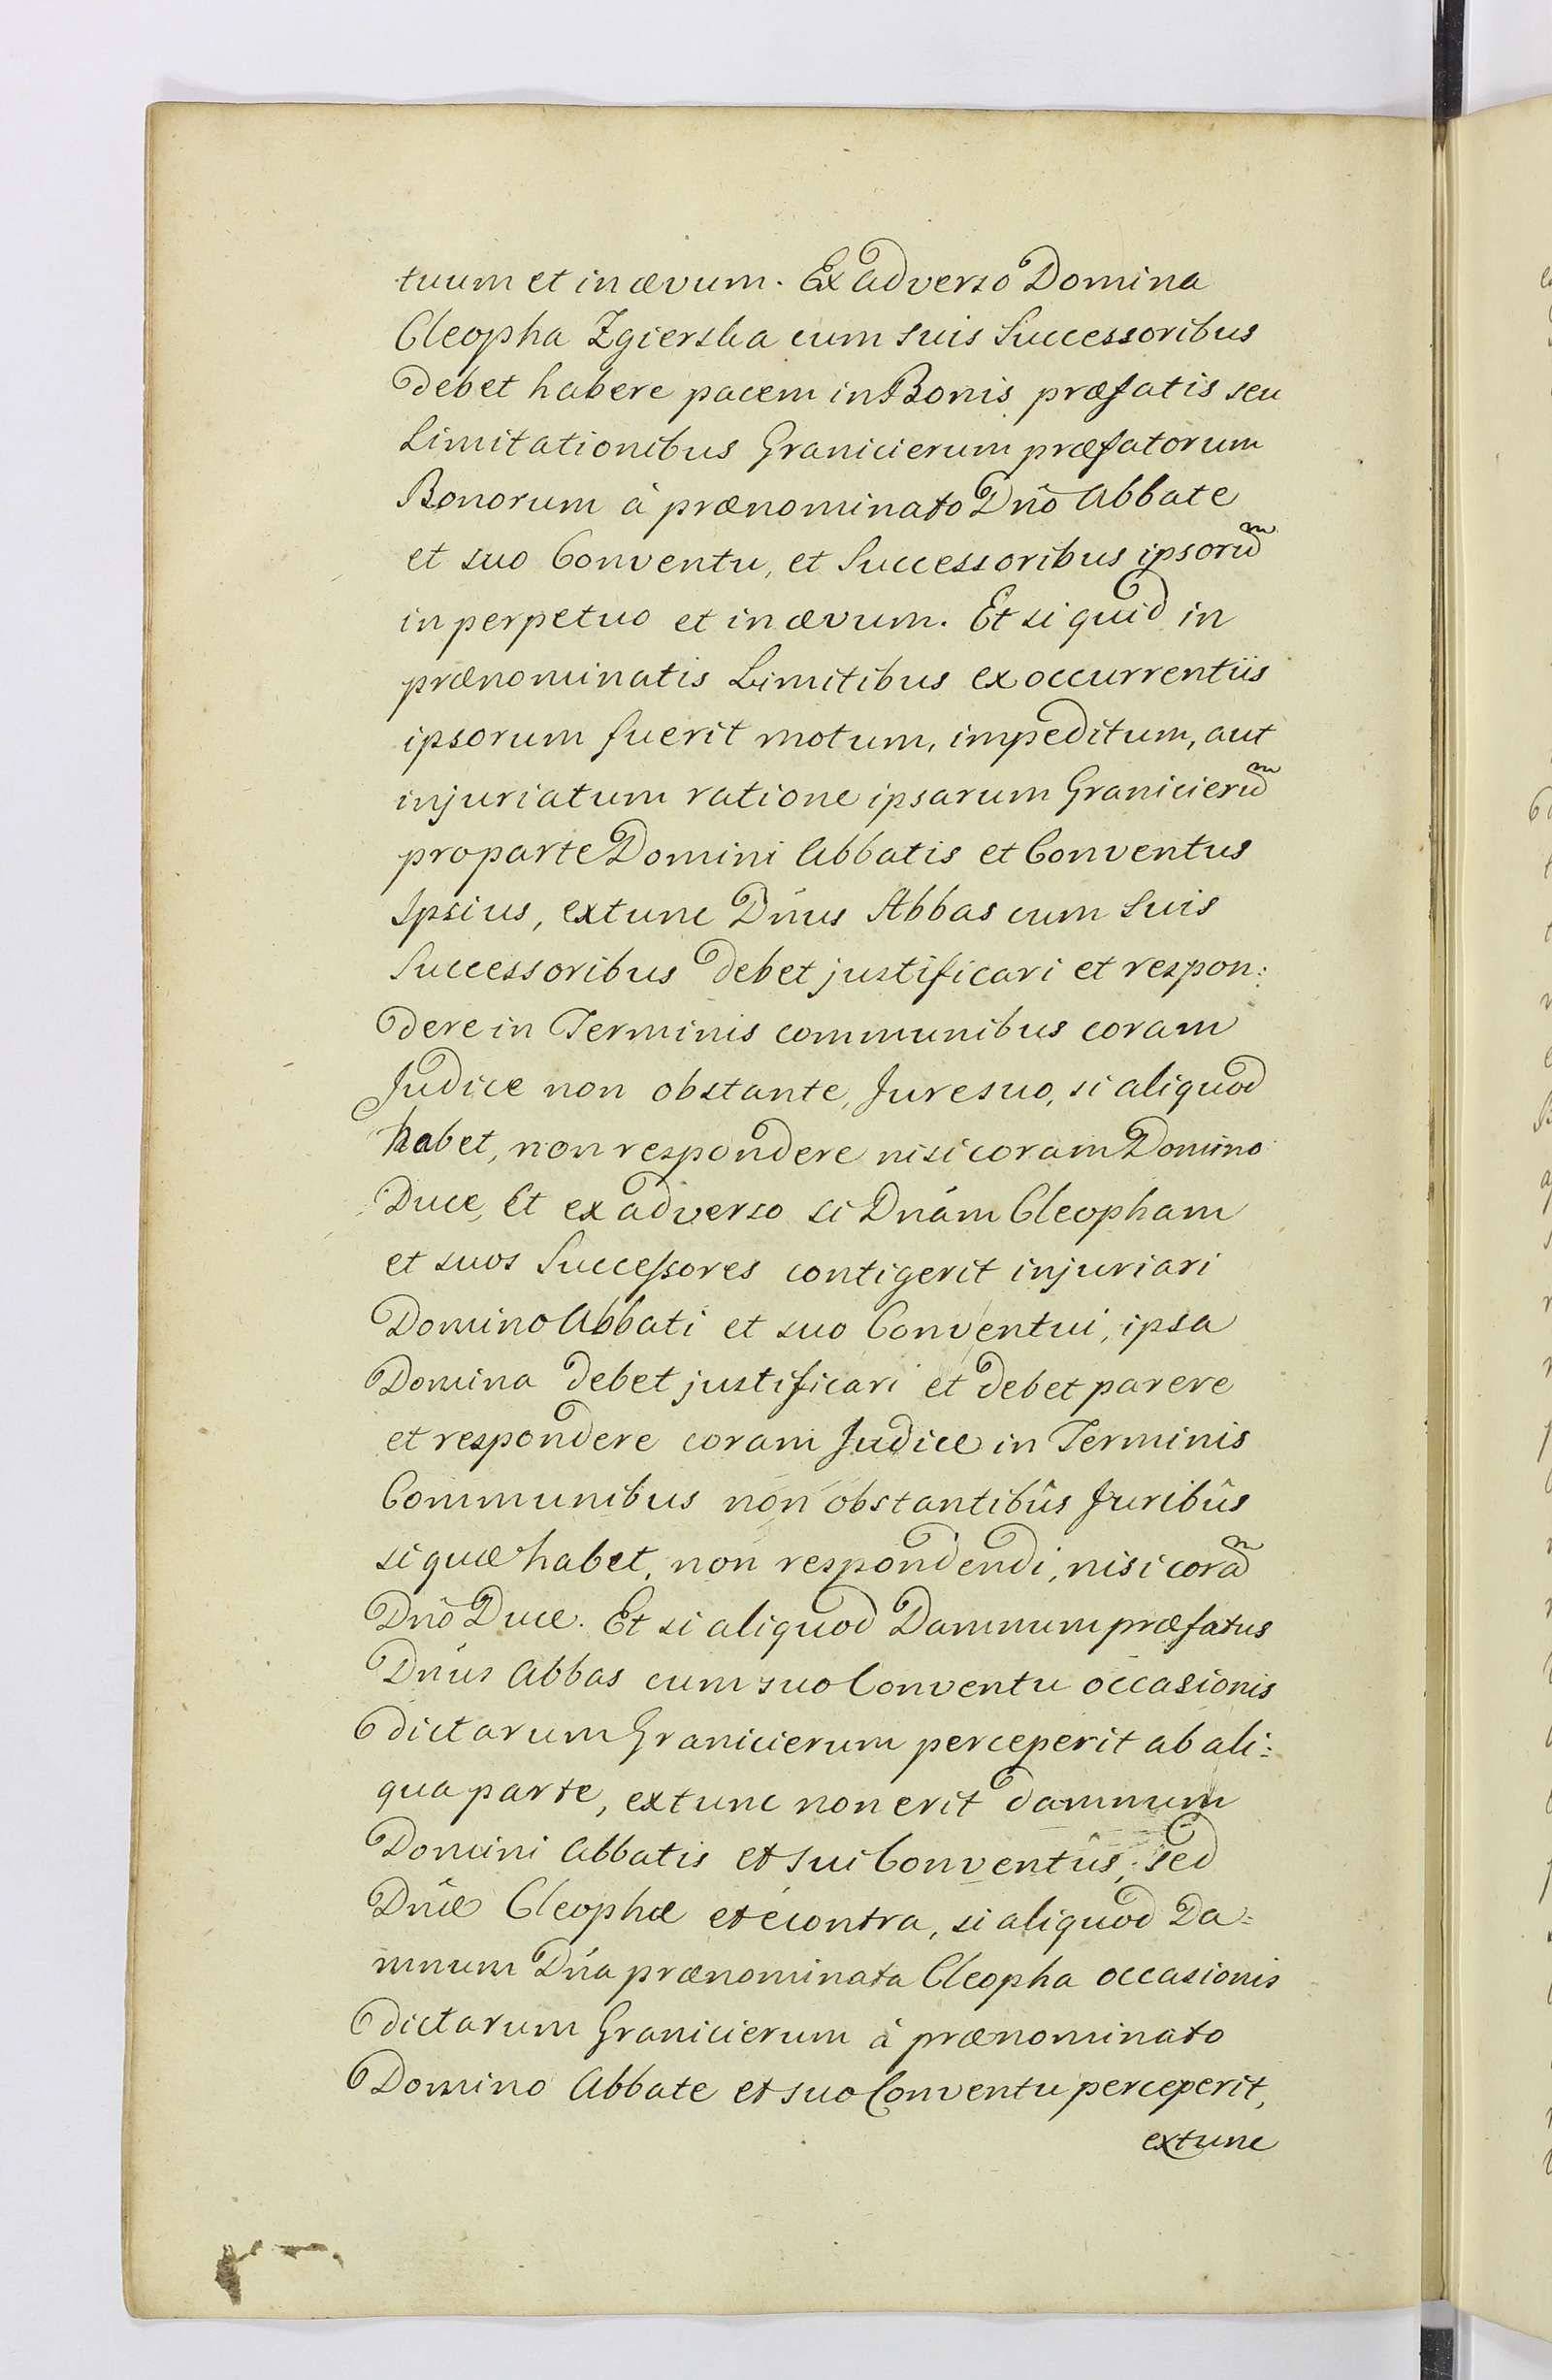 tuum et in ævum. Ex adverso Domina
Cleopha Zgierska cum suis Successoribus
debet habere pacem in Bonis præfatis seu
Limitationibus Granicierum præfatorum
Bonorum à prænominato Dnō Abbate
et suo Conventu, et Successoribus ipsoruᵐ
in perpetuo et in ævum. Et si quid in
prænominatis Limitibus ex occurrentiis
ipsorum fuerit motum, impeditum, aut
injuriatum ratione ipsarum Granicieruᵐ
pro parte Domini Abbatis et Conventus
Ipsius, extunc Dn̄us Abbas cum Suis
Successoribus debet justificari et respon:
dere in Terminis communibus coram
Judice non obstante, Jure suo, si aliquod
habet, non respondere nisi coram Domino
Duce, Et ex adverso si Dnām Cleopham
et suos Successores contigerit injuriari
Domino Abbati et suo Conventui, ipsa
Domina debet justificari et debet parere
et respondere coram Judice in Terminis
Communibus non obstantibûs Juribûs
si quæ habet, non respondendi, nisi coraᵐ
Dnō Duce. Et si aliquod Damnum præfatus
Dnūs Abbas cum suo Conventu occasionis
dictarum Granicierum perceperit ab ali:
qua parte, extunc non erit damnum
Domini Abbatis et sui Conventûs, sed
Dnǣ Cleophæ et écontra, si aliquod Da=
mnum Dn̄a prænominata Cleopha occasionis
dictarum Granicierum à prænominato
Domino Abbate et suo Conventu perceperit,
extunc